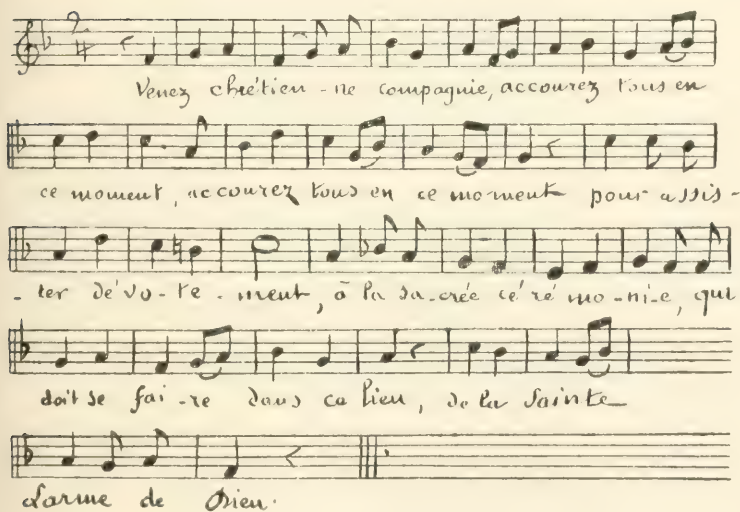 Venez chrétien - ne compagnie, accourez tous en
ce moment, accourez tous en ce moment pour assis -
- ter dévo - te - ment, à la sa - crée cé ré mo - ni - e, qui
doit se fai - re dans ce lieu, de la Sainte
Larme de Dieu.